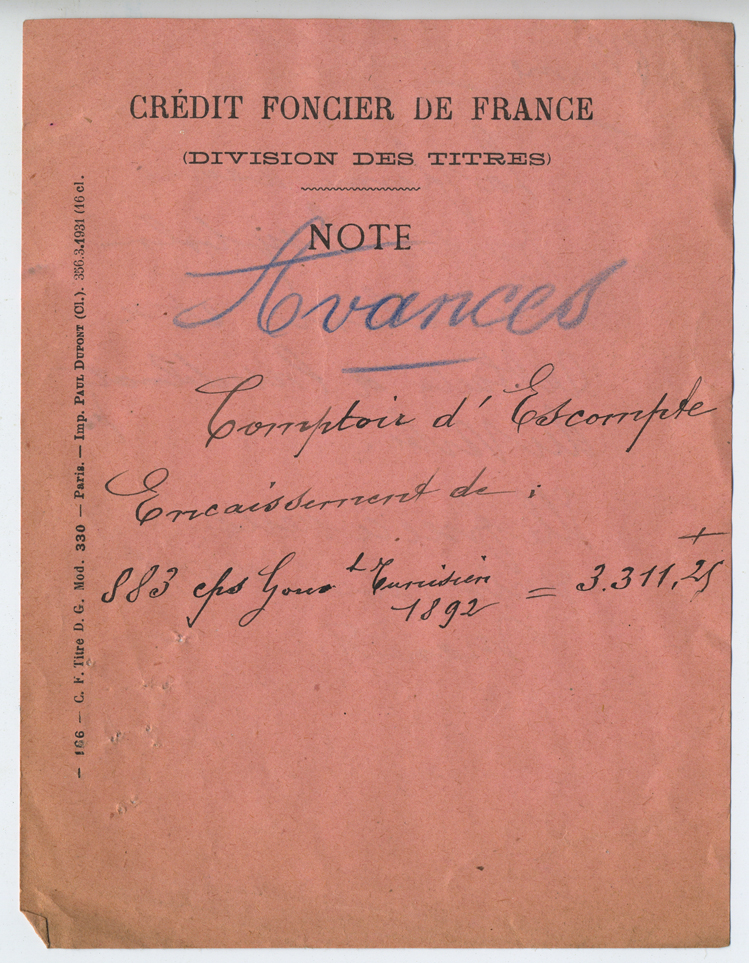 CRÉDIT FONCIER DE FRANCE
(DIVISION DES TITRES)
NOTE
Avances
Comptoir d'Escompte
Encaissement de :
883 cps Gouvt Tunisien = 3.311,25
1892
— 166 — C. F. Titre D. G. Mod. 330 — Paris. — Imp. PAUL DUPONT (Cl.). 356.3.1931 (16 cl.